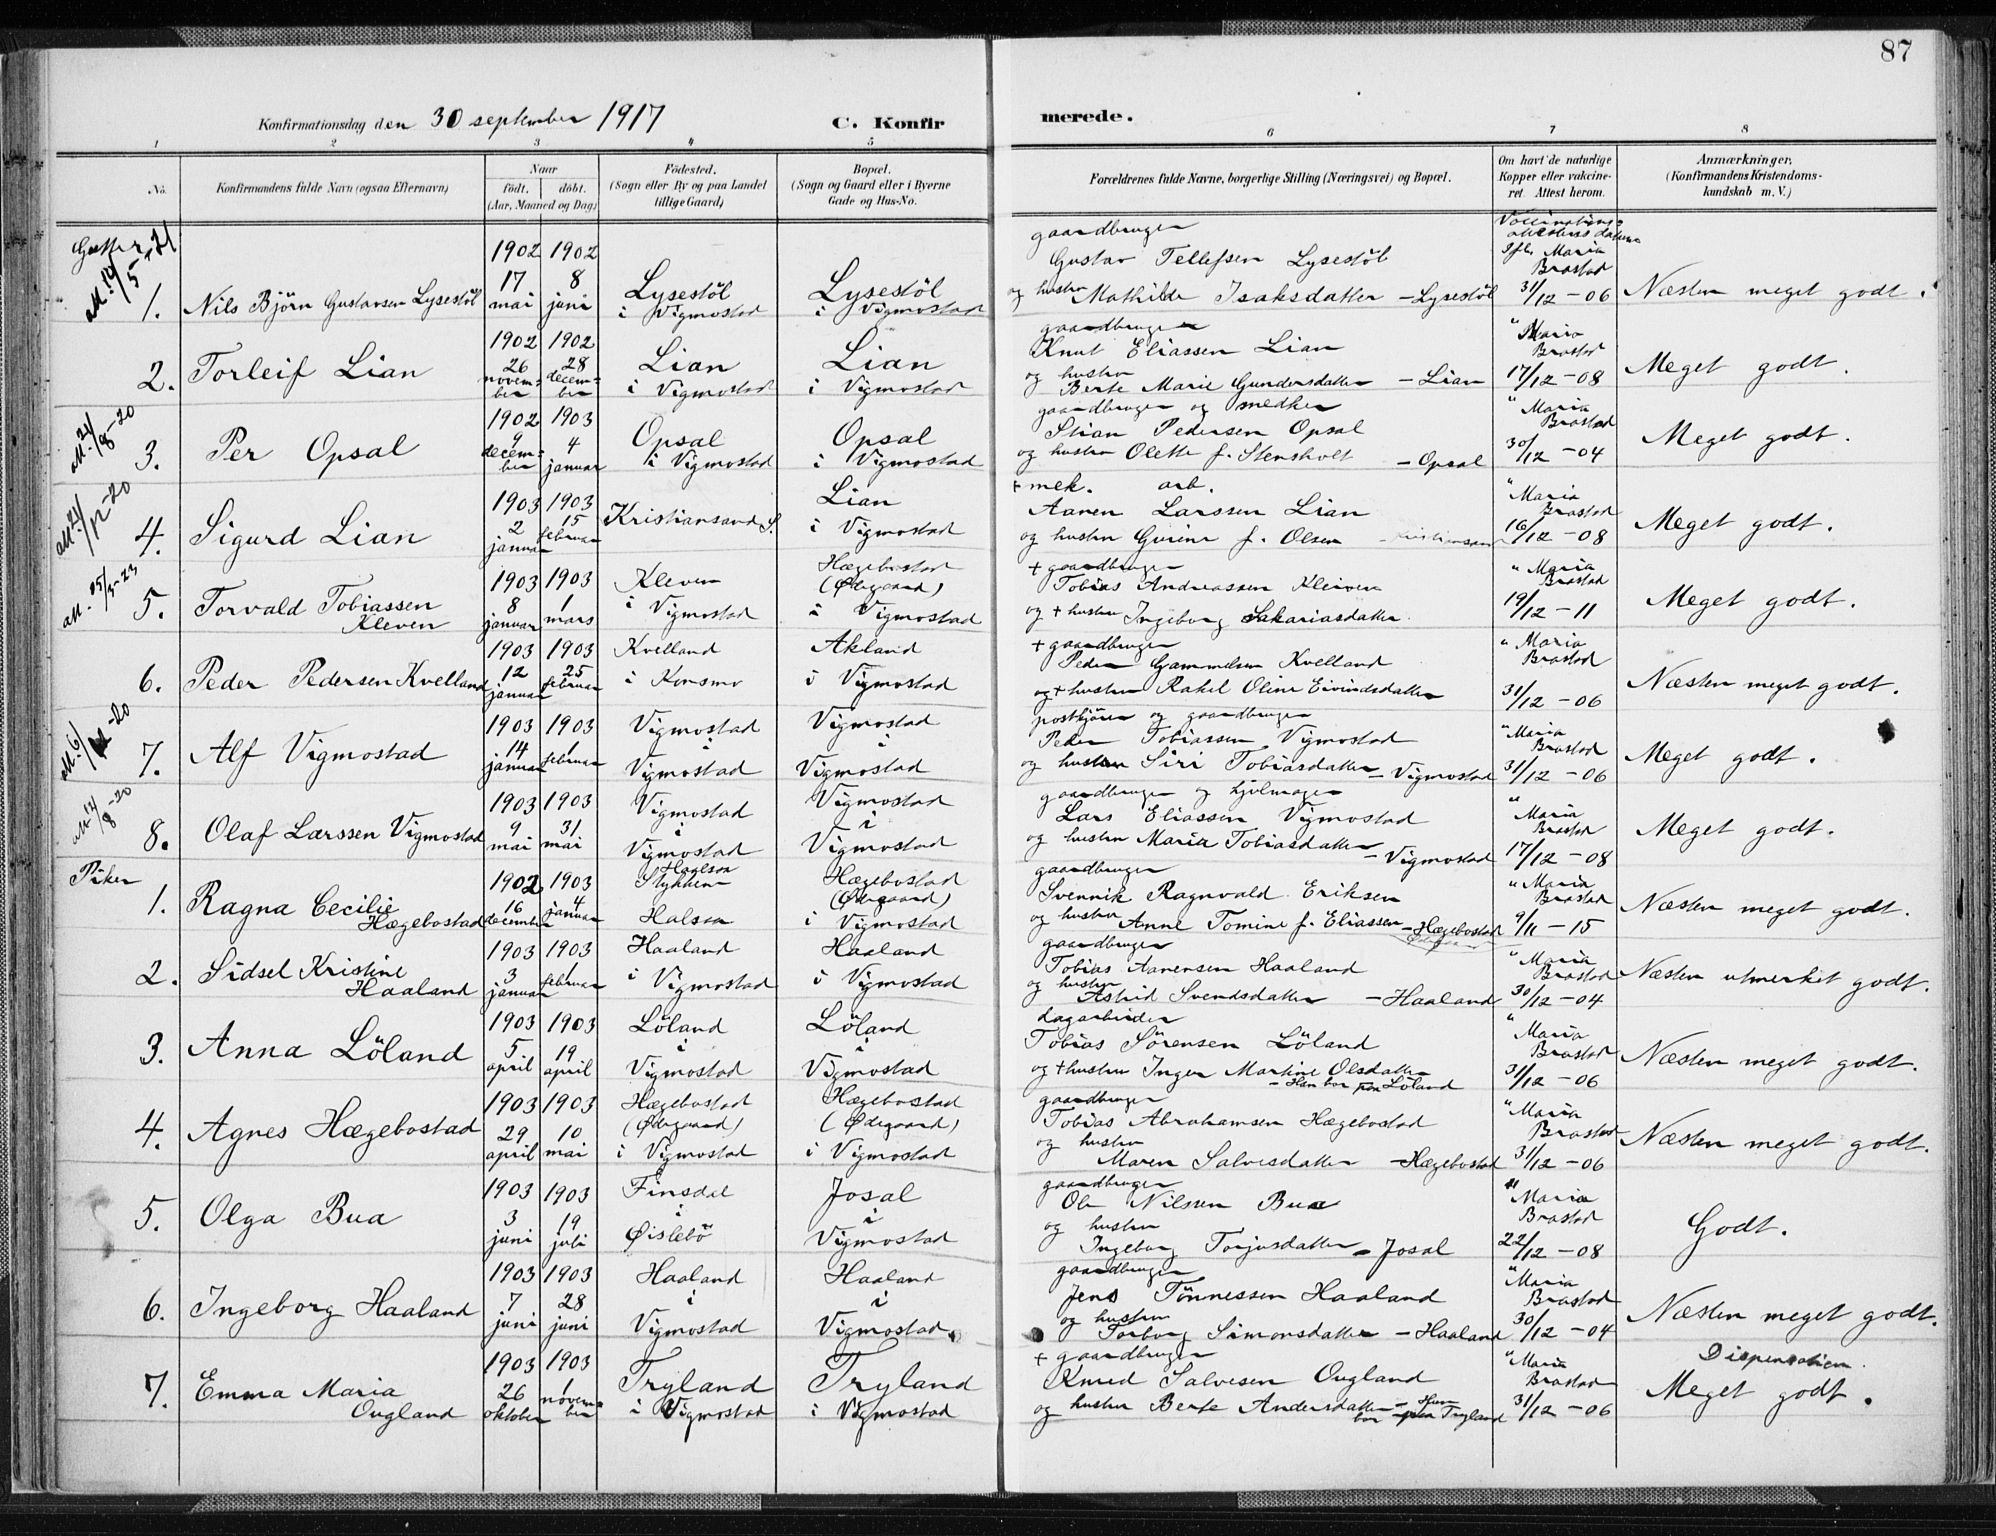 87
Konfirmationsdag den 30 september 1917 C. Konfir merede.
1 2 3 4 5 6 7 8
No. Konfirmandens fulde Navn (ogsaa Efternavn) Naar födt. döbt. (Aar, Maaned og Dag) Födested. (Sogn eller By og paa Landet tillige Gaard) Bopæl. (Sogn og Gaard eller i Byerne Gade og Hus-No. Forældrenes fulde Navne, borgerlige Stilling (Næringsvei) og Bopæl. Om havt de naturlige Kopper eller vakcineret. Attest herom. Anmærkninger. (Konfirmandens Kristendomskundskab m. V.)
Gutter
aM. 14/5 +21
1. Nils Björn Gustavsen Lysestöl 1902 17 mai 1902 8 juni Lysestöl i Vigmostad Lysestöl i Vigmostad gaardbruger Gustav Tellefsen Lysestöl og hustru Mathilde Isaksdatter - Lysestöl Maria Brastad 31/12 - 06 Næsten meget godt.
2. Torleif Lian 1902 26 november 1902 28 december Lian i Vigmostad Lian i Vigmostad gaardbruger Knut Eliassen Lian og hustru Berte Marie Gundersdatter - Lian " Maria Brastad 17/12 - 08 Meget godt.
aM. 24/8-20
3. Per Opsal 1902 9 december 1903 4 januar Opsal i Vigmostad Opsal i Vigmostad gaardbruger og smedker Stian Pedersen Opsal og hustru Olette f. Stensholt - Opsal " Maria Brastad 30/12 - 04 Meget godt.
4. Sigurd Lian 1903 2 januar 1903 15 februar Kristiansand S. Lian i Vigmostad + mek. arb. Aanen Larssen Lian og hustru Gurine f. Olsen - Kristiansand " Maria Brastad 16/12 - 08 Meget godt.
aM. 25/3-23
5. Torvald Tobiassen Kleven 1903 8 januar 1903 1 mars Kleven i Vigmostad Hægebostad (Ødegaard) i Vigmostad + gaardbruger Tobias Andreassen Kleiven og + hustru Ingeborg Sakariasdatter " Maria Brastad 19/12 - 11 Meget godt.
6. Peder Pedersen Kvelland 1903 12 januar 1903 25 februar Kvelland i Konsmo Akland i Vigmostad + gaardbruger Peder Gammelsen Kvelland og + hustru Rakel Oline Eivindsdatter " Maria Brastad 31/12 - 06 Næsten meget godt.
7. Alf Vigmostad 1903 14 januar 1903 1 februar Vigmostad i Vigmostad Vigmostad i Vigmostad postkjörer og gaardbruger Peder Tobiassen Vigmostad og hustru Siri Tobiasdatter - Vigmostad " Maria Brastad 31/12 - 06 Meget godt.
aM 14/8-20
8. Olaf Larssen Vigmostad 1903 9 mai 1903 31 mai Vigmostad i Vigmostad Vigmostad i Vigmostad gaardbruger og hjulmager Lars Eliassen Vigmostad og hustru Maria Tobiasdatter - Vigmostad " Maria Brastad 17/12 - 08 Meget godt.
Piker
1. Ragna Cecilie Hægebostad 1902 16 december 1903 4 januar Stykken Halsaa Hægebostad (Ødegaard) i Vigmostad gaardbruger Svennik Ragnvald Eriksen og hustru Anne Tomine f. Eliassen - Hægebostad Ødegaard " Maria Brastad 9/11 - 15 Næsten meget godt.
2. Sidsel Kristine Haaland 1903 3 januar 1903 1 februar Haaland i Vigmostad Haaland i Vigmostad gaardbruger Tobias Aanensen Haaland og hustru Astrid Svendsdatter - Haaland " Maria Brastad 30/12 - 04 Næsten utmerket godt.
3. Anna Löland 1903 5 april 1903 19 april Löland i Vigmostad Löland i Vigmostad dagarbeider Tobias Sörensen Löland og + hustru Inger Martine Olsdatter - Han bor paa Löland " Maria Brastad 31/12 - 06 Næsten meget godt.
4. Agnes Hægebostad 1903 29 april 1903 10 mai Hægebostad (Ødegaard) i Vigmostad Hægebostad (Ødegaard) i Vigmostad gaardbruger Tobias Abrahamsen Hægebostad og hustru Maren Salvesdatter - Hægebostad " Maria Brastad 31/12 - 06 Næsten meget godt.
5. Olga Bua 1903 3 juni 1903 19 juli Finsdal i Øislebö Josal i Vigmostad gaardbruger Ole Nilsen Bua og hustru Ingeborg Torjusdatter - Josal " Maria Brastad 22/12 - 08 Godt.
6. Ingeborg Haaland 1903 7 juni 1903 28 juni Haaland i Vigmostad Haaland i Vigmostad gaardbruger Jens Tönnessen Haaland og hustru Torborg Simonsdatter - Haaland " Maria Brastad 30/12 - 04 Næsten meget godt.
7. Emma Maria Ougland 1903 26 oktober 1903 1 november Tryland i Vigmostad Tryland i Vigmostad + gaardbruger Knud Salvesen Ougland og hustru Berte Andersdatter - Hun bor paa Tryland " Maria Brastad 31/12 - 06 Dispensation. Meget godt.